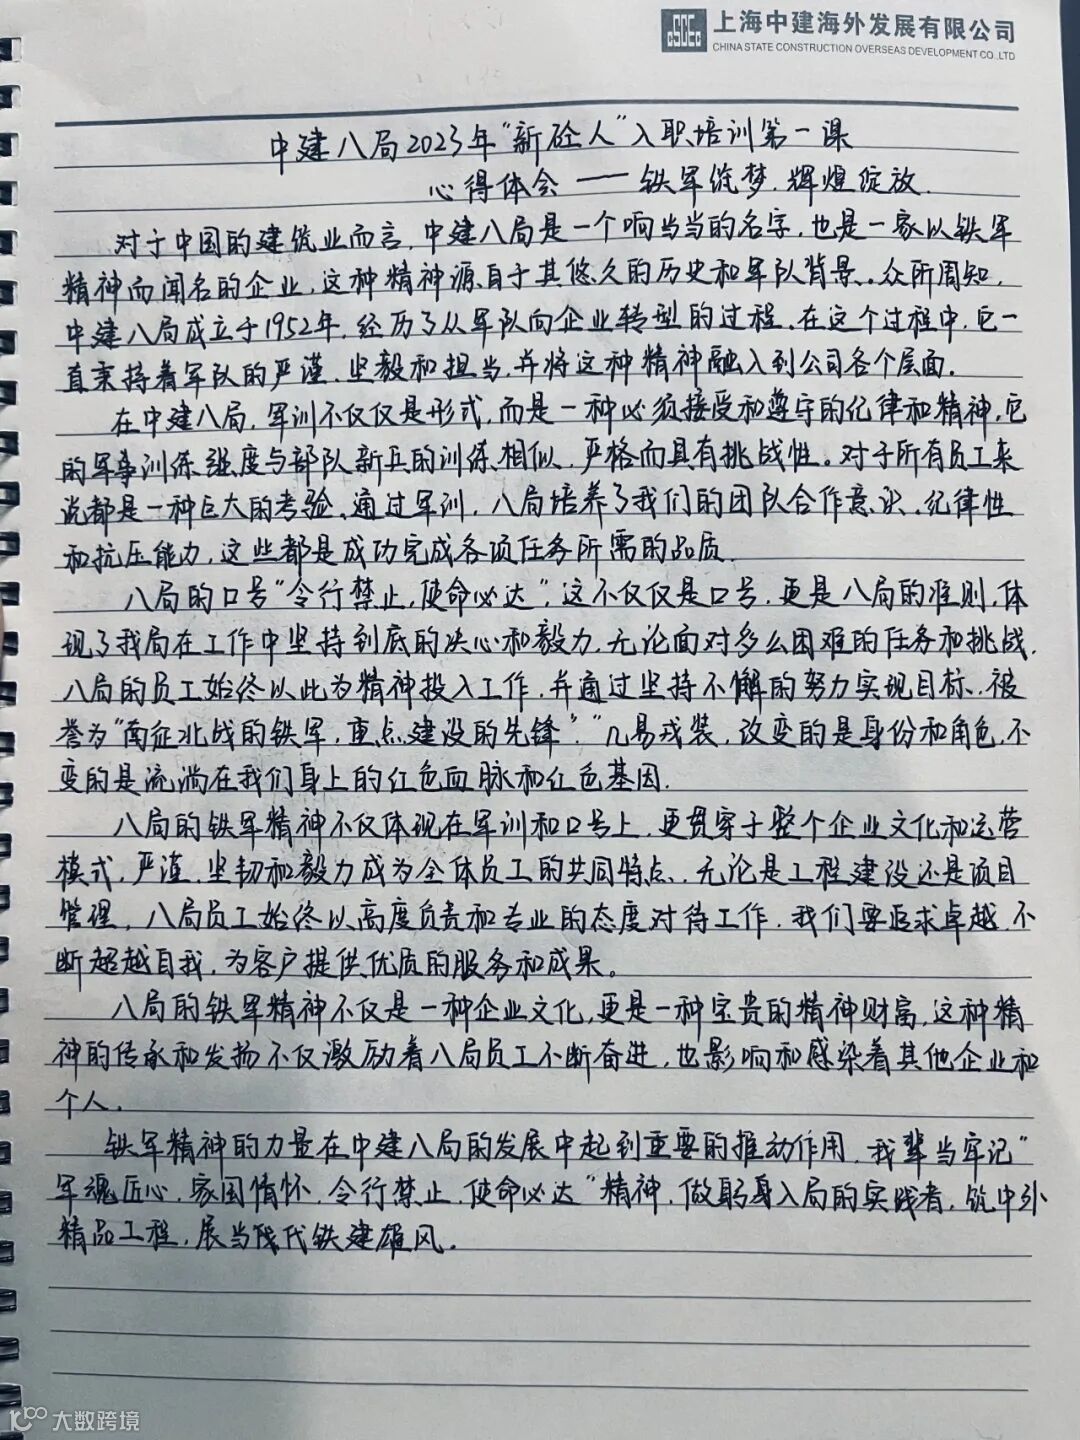 CSCEC
上海中建海外发展有限公司
CHINA STATE CONSTRUCTION OVERSEAS DEVELOPMENT CO.,LTD
中建八局2023年“新砼人”入职培训第一课
心得体会——铁军筑梦.辉煌绽放.
对于中国的建筑业而言,中建八局是一个响当当的名字,也是一家以铁军
精神而闻名的企业,这种精神源自于其悠久的历史和军队背景.众所周知,
中建八局成立于1952年,经历了从军队向企业转型的过程.在这个过程中,它一
直秉持着军队的严谨、坚毅和担当,并将这种精神融入到公司各个层面.
在中建八局,军训不仅仅是形式,而是一种必须接受和遵守的纪律和精神,它
的军事训练强度与部队新兵的训练相似,严格而具有挑战性。对于所有员工来
说都是一种巨大的考验,通过军训,八局培养了我们的团队合作意识、纪律性
和抗压能力,这些都是成功完成各项任务所需的品质.
八局的口号“令行禁止,使命必达”,这不仅仅是口号,更是八局的准则,体
现了我局在工作中坚持到底的决心和毅力,无论面对多么困难的任务和挑战,
八局的员工始终以此为精神投入工作,并通过坚持不懈的努力实现目标.被
誉为“南征北战的铁军,重点建设的先锋”,“几易戎装,改变的是身份和角色,不
变的是流淌在我们身上的红色血脉和红色基因.
八局的铁军精神不仅体现在军训和口号上,更贯穿于整个企业文化和运营
模式,严谨、坚韧和毅力成为全体员工的共同特点.无论是工程建设还是项目
管理,八局员工始终以高度负责和专业的态度对待工作.我们要追求卓越,不
断超越自我,为客户提供优质的服务和成果。
八局的铁军精神不仅是一种企业文化,更是一种宝贵的精神财富,这种精
神的传承和发扬不仅激励着八局员工不断奋进,也影响和感染着其他企业和
个人.
铁军精神的力量在中建八局的发展中起到重要的推动作用,我辈当牢记“
军魂匠心,家国情怀,令行禁止,使命必达”精神,做躬身入局的实践者,筑中外
精品工程,展当代铁建雄风.
大数跨境